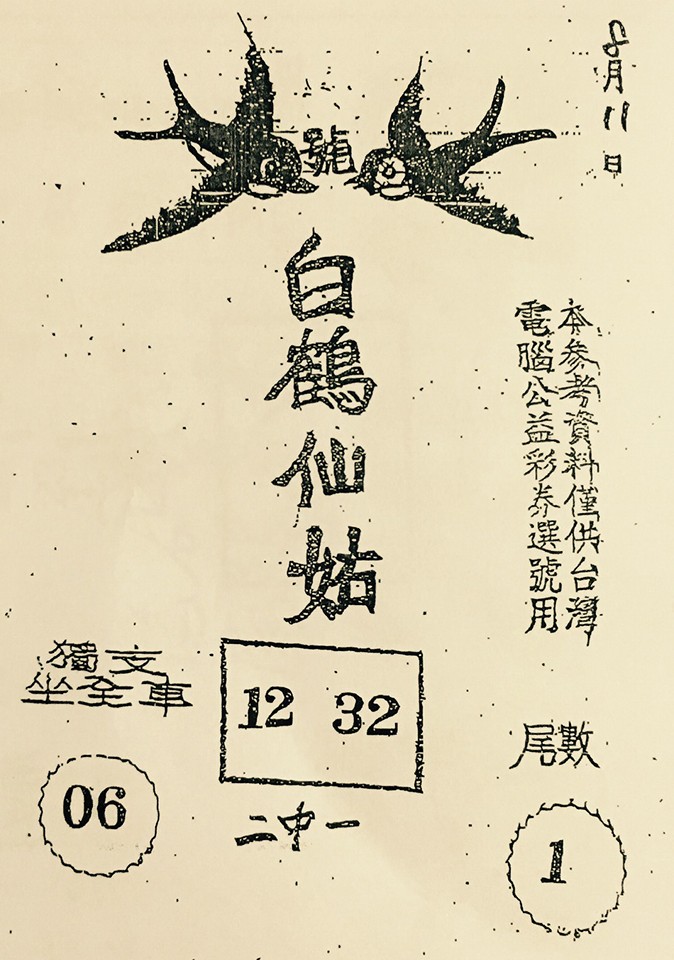 8月11日
號
白鶴仙姑
本參考資料僅供台灣
電腦公益彩券選號用
獨支
坐全車
06
12 32
二中一
尾數
1